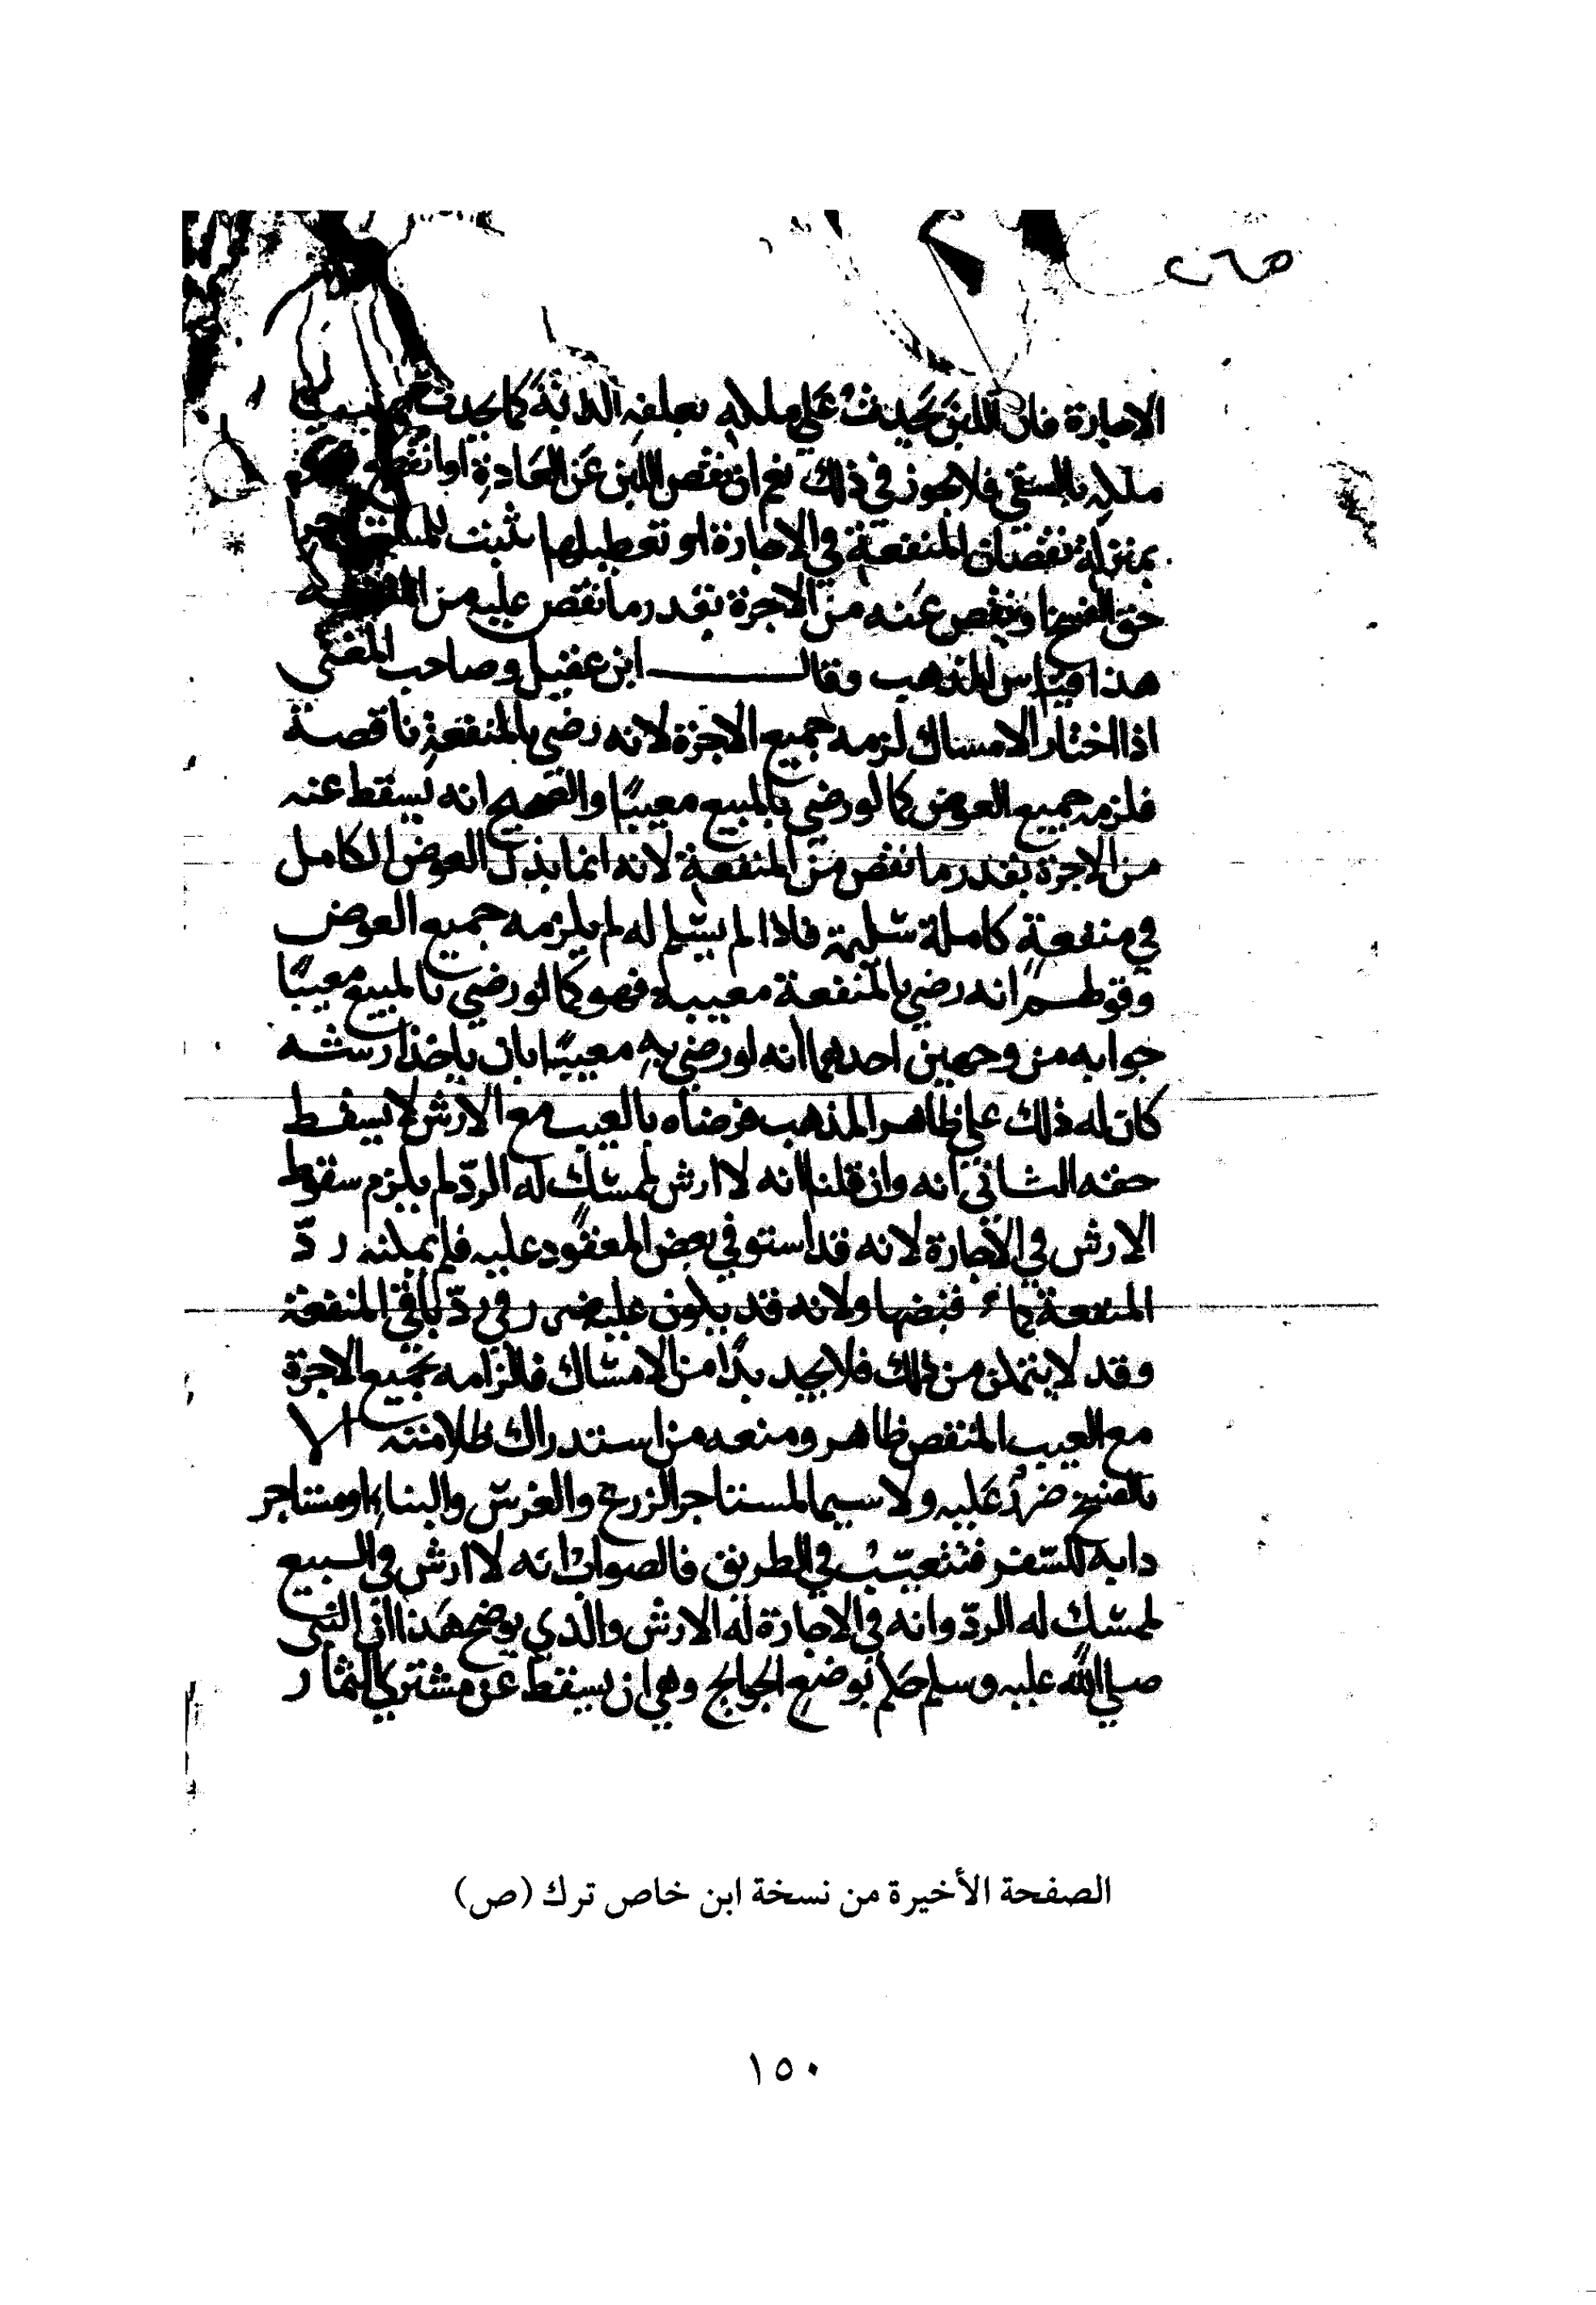 ٢٦٥
الاجارة فان اللبن يحدث على ملكه بعلفه الدابة كما يحدث
ملكه بالسقي فلا يجوز في ذلك نعم ان نقص اللبن عن العادة او انقطع
بمنزلة نقصان المنفعة في الاجارة او تعطيلها يثبت للمستاجر
حق الفسخ او ينقص عنه من الاجرة بقدر ما نقص عليه من المنفعة
هذا قياس المذهب وقال ابن عقيل وصاحب المغني
اذا اختار الامساك لزمه جميع الاجرة لانه رضي بالمنفعة ناقصة
فلزمه جميع العوض كما لو رضي بالمبيع معيبًا والصحيح انه يسقط عنه
من الاجرة بقدر ما نقص من المنفعة لانه انما بذل العوض الكامل
في منفعة كاملة سليمة فاذا لم يسلم له لم يلزمه جميع العوض
وقولهم انه رضي بالمنفعة معيبة فهو كما لو رضي بالمبيع معيبًا
جوابه من وجهين احدهما انه لو رضي به معيبًا بان ياخذ ارشه
كان له ذلك على ظاهر المذهب فرضاه بالعيب مع الارش لا يسقط
حقه الثاني انه وان قلنا انه لا ارش لممسك له الردّ لم يلزم سقوط
الارش في الاجارة لانه قد استوفى بعض المعقود عليه فلم يمكنه ردّ
المنفعة كما قبضها ولانه قد يكون عليه ضرر في ردّ باقي المنفعة
وقد لا يتمكن من ذلك فلا يجد بدًا من الامساك فالزامه بجميع الاجرة
مع العيب المنقص ظاهر ومنعه من استدراك ظلامته الا
بالفسخ ضررٌ عليه ولا سيما لمستاجر الزرع والغرس والبناء او مستاجر
دابة للسفر فتتعيّب في الطريق فالصواب انه لا ارش في المبيع
لممسك له الردّ وانه في الاجارة له الارش والذي يوضح هذا ان النبي
صلى الله عليه وسلم حكم بوضع الجوايح وهي ان يسقط عن مشتري الثمار
الصفحة الأخيرة من نسخة ابن خاص ترك (ص)
١٥٠